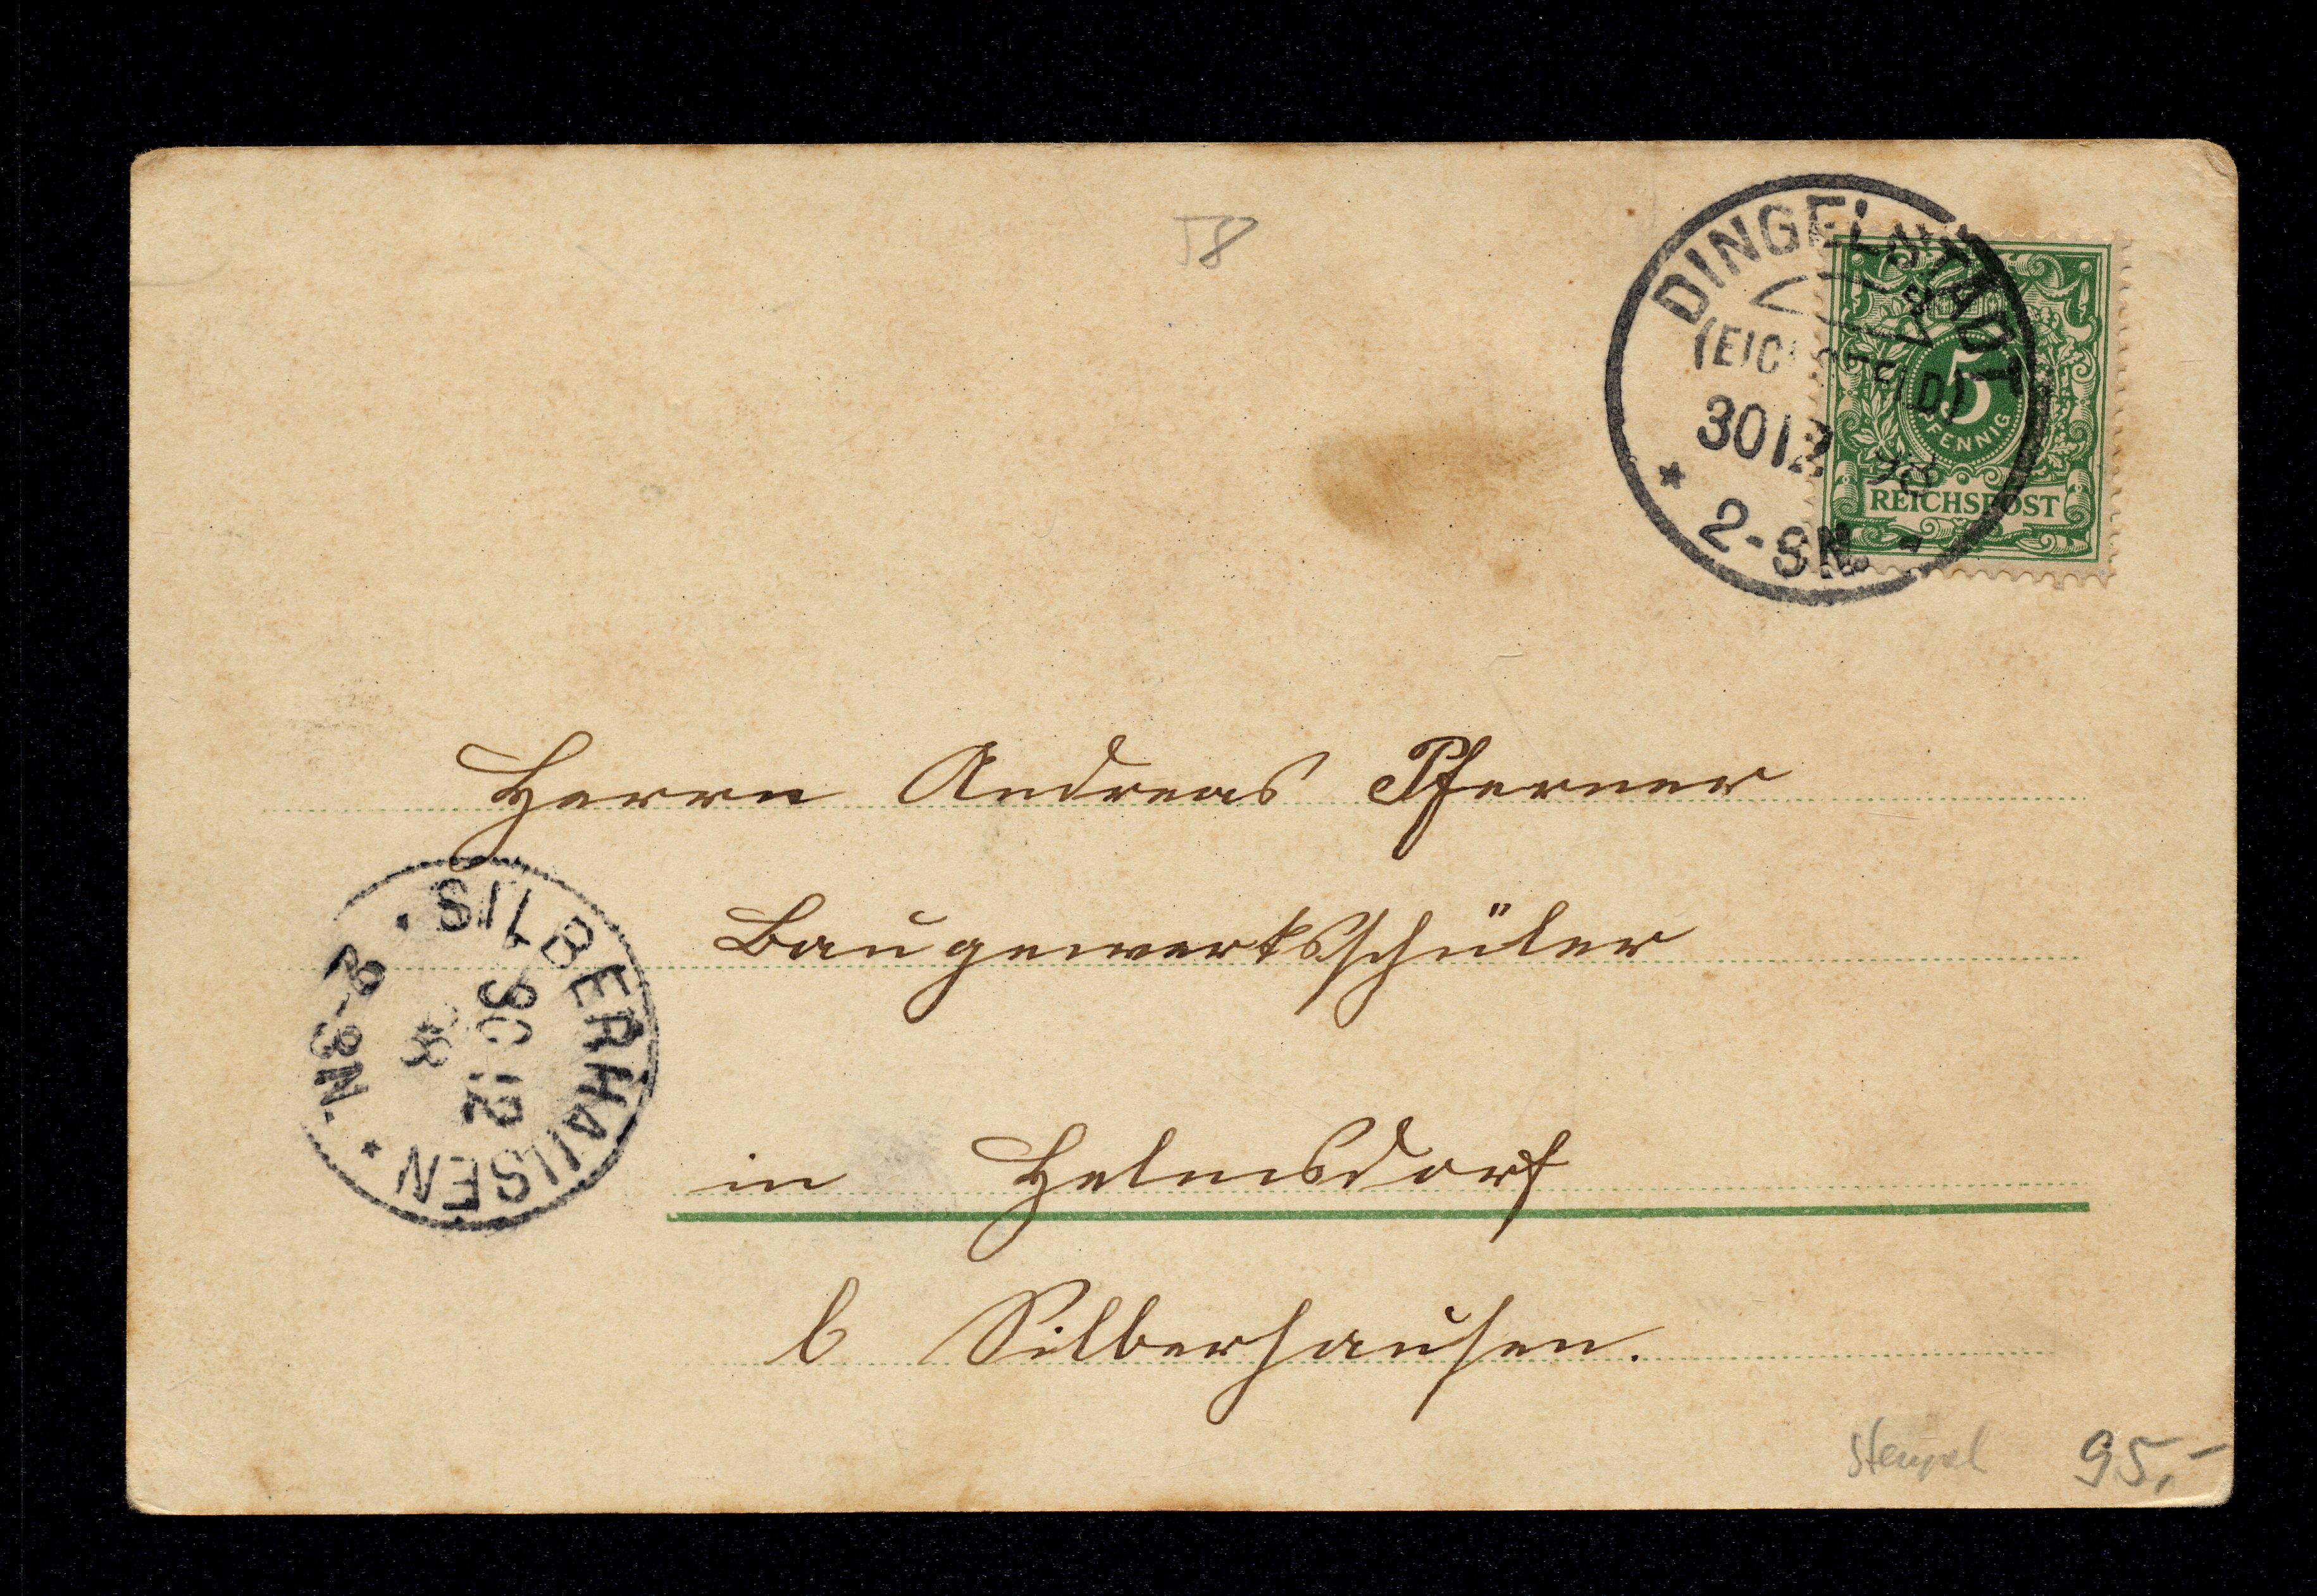 58
DINGELSTÄDT
(EICHSFELD)
30 12 98
2-3N.
5
PFENNIG
REICHSPOST
Herrn Andreas Pferner
Baugewerksschüler
SILBERHAUSEN
30 12
98
2-3N.
in Helmsdorf
b Silberhausen.
Stempel 95,-